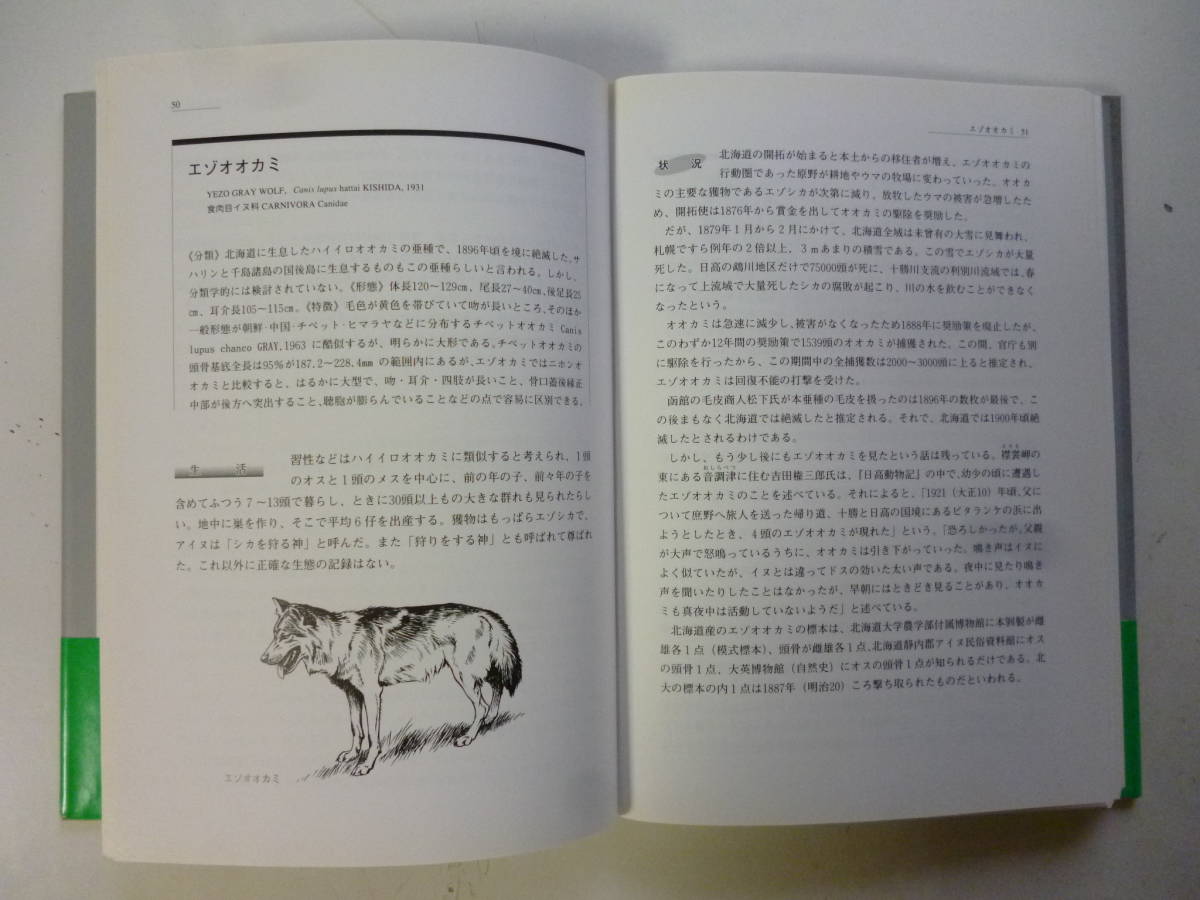 50
エゾオオカミ
YEZO GRAY WOLF, Canis lupus hattai KISHIDA, 1931
食肉目イヌ科 CARNIVORA Canidae
《分類》北海道に生息したハイイロオオカミの亜種で、1896年頃を境に絶滅した。サ
ハリンと千島諸島の国後島に生息するものもこの亜種らしいと言われる。しかし、
分類学的には検討されていない。《形態》体長120〜129cm、尾長27〜40cm、後足長25
cm、耳介長105〜115cm。《特徴》毛色が黄色を帯びていて吻が長いところ、そのほか
一般形態が朝鮮・中国・チベット・ヒマラヤなどに分布するチベットオオカミ Canis
lupus chanco GRAY, 1963 に酷似するが、明らかに大形である。チベットオオカミの
頭骨基底全長は95％が187.2〜228.4mm の範囲内にあるが、エゾオオカミではニホンオ
オカミと比較すると、はるかに大型で、吻・耳介・四肢が長いこと、骨口蓋後縁正
中部が後方へ突出すること、聴胞が膨らんでいることなどの点で容易に区別できる。
生 活
習性などはハイイロオオカミに類似すると考えられ、1頭
のオスと1頭のメスを中心に、前の年の子、前々年の子を
含めてふつう7〜13頭で暮らし、ときに30頭以上もの大きな群れも見られたらし
い。地中に巣を作り、そこで平均6仔を出産する。獲物はもっぱらエゾシカで、
アイヌは「シカを狩る神」と呼んだ。また「狩りをする神」とも呼ばれて尊ばれ
た。これ以外に正確な生態の記録はない。
エゾオオカミ
エゾオオカミ 51
状 況
北海道の開拓が始まると本土からの移住者が増え、エゾオオカミの
行動圏であった原野が耕地やウマの牧場に変わっていった。オオカ
ミの主要な獲物であるエゾシカが次第に減り、放牧したウマの被害が急増したた
め、開拓使は1876年から賞金を出してオオカミの駆除を奨励した。
だが、1879年1月から2月にかけて、北海道全域は未曾有の大雪に見舞われ、
札幌ですら例年の2倍以上、3mあまりの積雪である。この雪でエゾシカが大量
死した。日高の鵡川地区だけで75000頭が死に、十勝川支流の利別川流域では、春
になって上流域で大量死したシカの腐敗が起こり、川の水を飲むことができなく
なったという。
オオカミは急速に減少し、被害がなくなったため1888年に奨励策を廃止したが、
このわずか12年間の奨励策で1539頭のオオカミが捕獲された。この間、官庁も別
に駆除を行ったから、この期間中の全捕獲数は2000〜3000頭に上ると推定され、
エゾオオカミは回復不能の打撃を受けた。
函館の毛皮商人松下氏が本亜種の毛皮を扱ったのは1896年の数枚が最後で、こ
の後まもなく北海道では絶滅したと推定される。それで、北海道では1900年頃絶
滅したとされるわけである。
しかし、もう少し後にもエゾオオカミを見たという話は残っている。襟裳岬の
東にある音調津に住む吉田権三郎氏は、『日高動物記』の中で、幼少の頃に遭遇し
たエゾオオカミのことを述べている。それによると、「1921（大正10）年頃、父に
ついて庶野へ旅人を送った帰り道、十勝と日高の国境にあるビタランケの浜に出
ようとしたとき、4頭のエゾオオカミが現れた」という。「恐ろしかったが、父親
が大声で怒鳴っているうちに、オオカミは引き下がっていった。鳴き声はイヌに
よく似ていたが、イヌとは違ってドスの効いた太い声である。夜中に見たり鳴き
声を聞いたりしたことはなかったが、早朝にはときどき見ることがあり、オオカ
ミも真夜中は活動していないようだ」と述べている。
北海道産のエゾオオカミの標本は、北海道大学農学部付属博物館に本剥製が雌
雄各1点（模式標本）、頭骨が雌雄各1点、北海道静内郡アイヌ民俗資料館にオス
の頭骨1点、大英博物館（自然史）にオスの頭骨1点が知られるだけである。北
大の標本の内1点は1887年（明治20）ころ撃ち取られたものだといわれる。